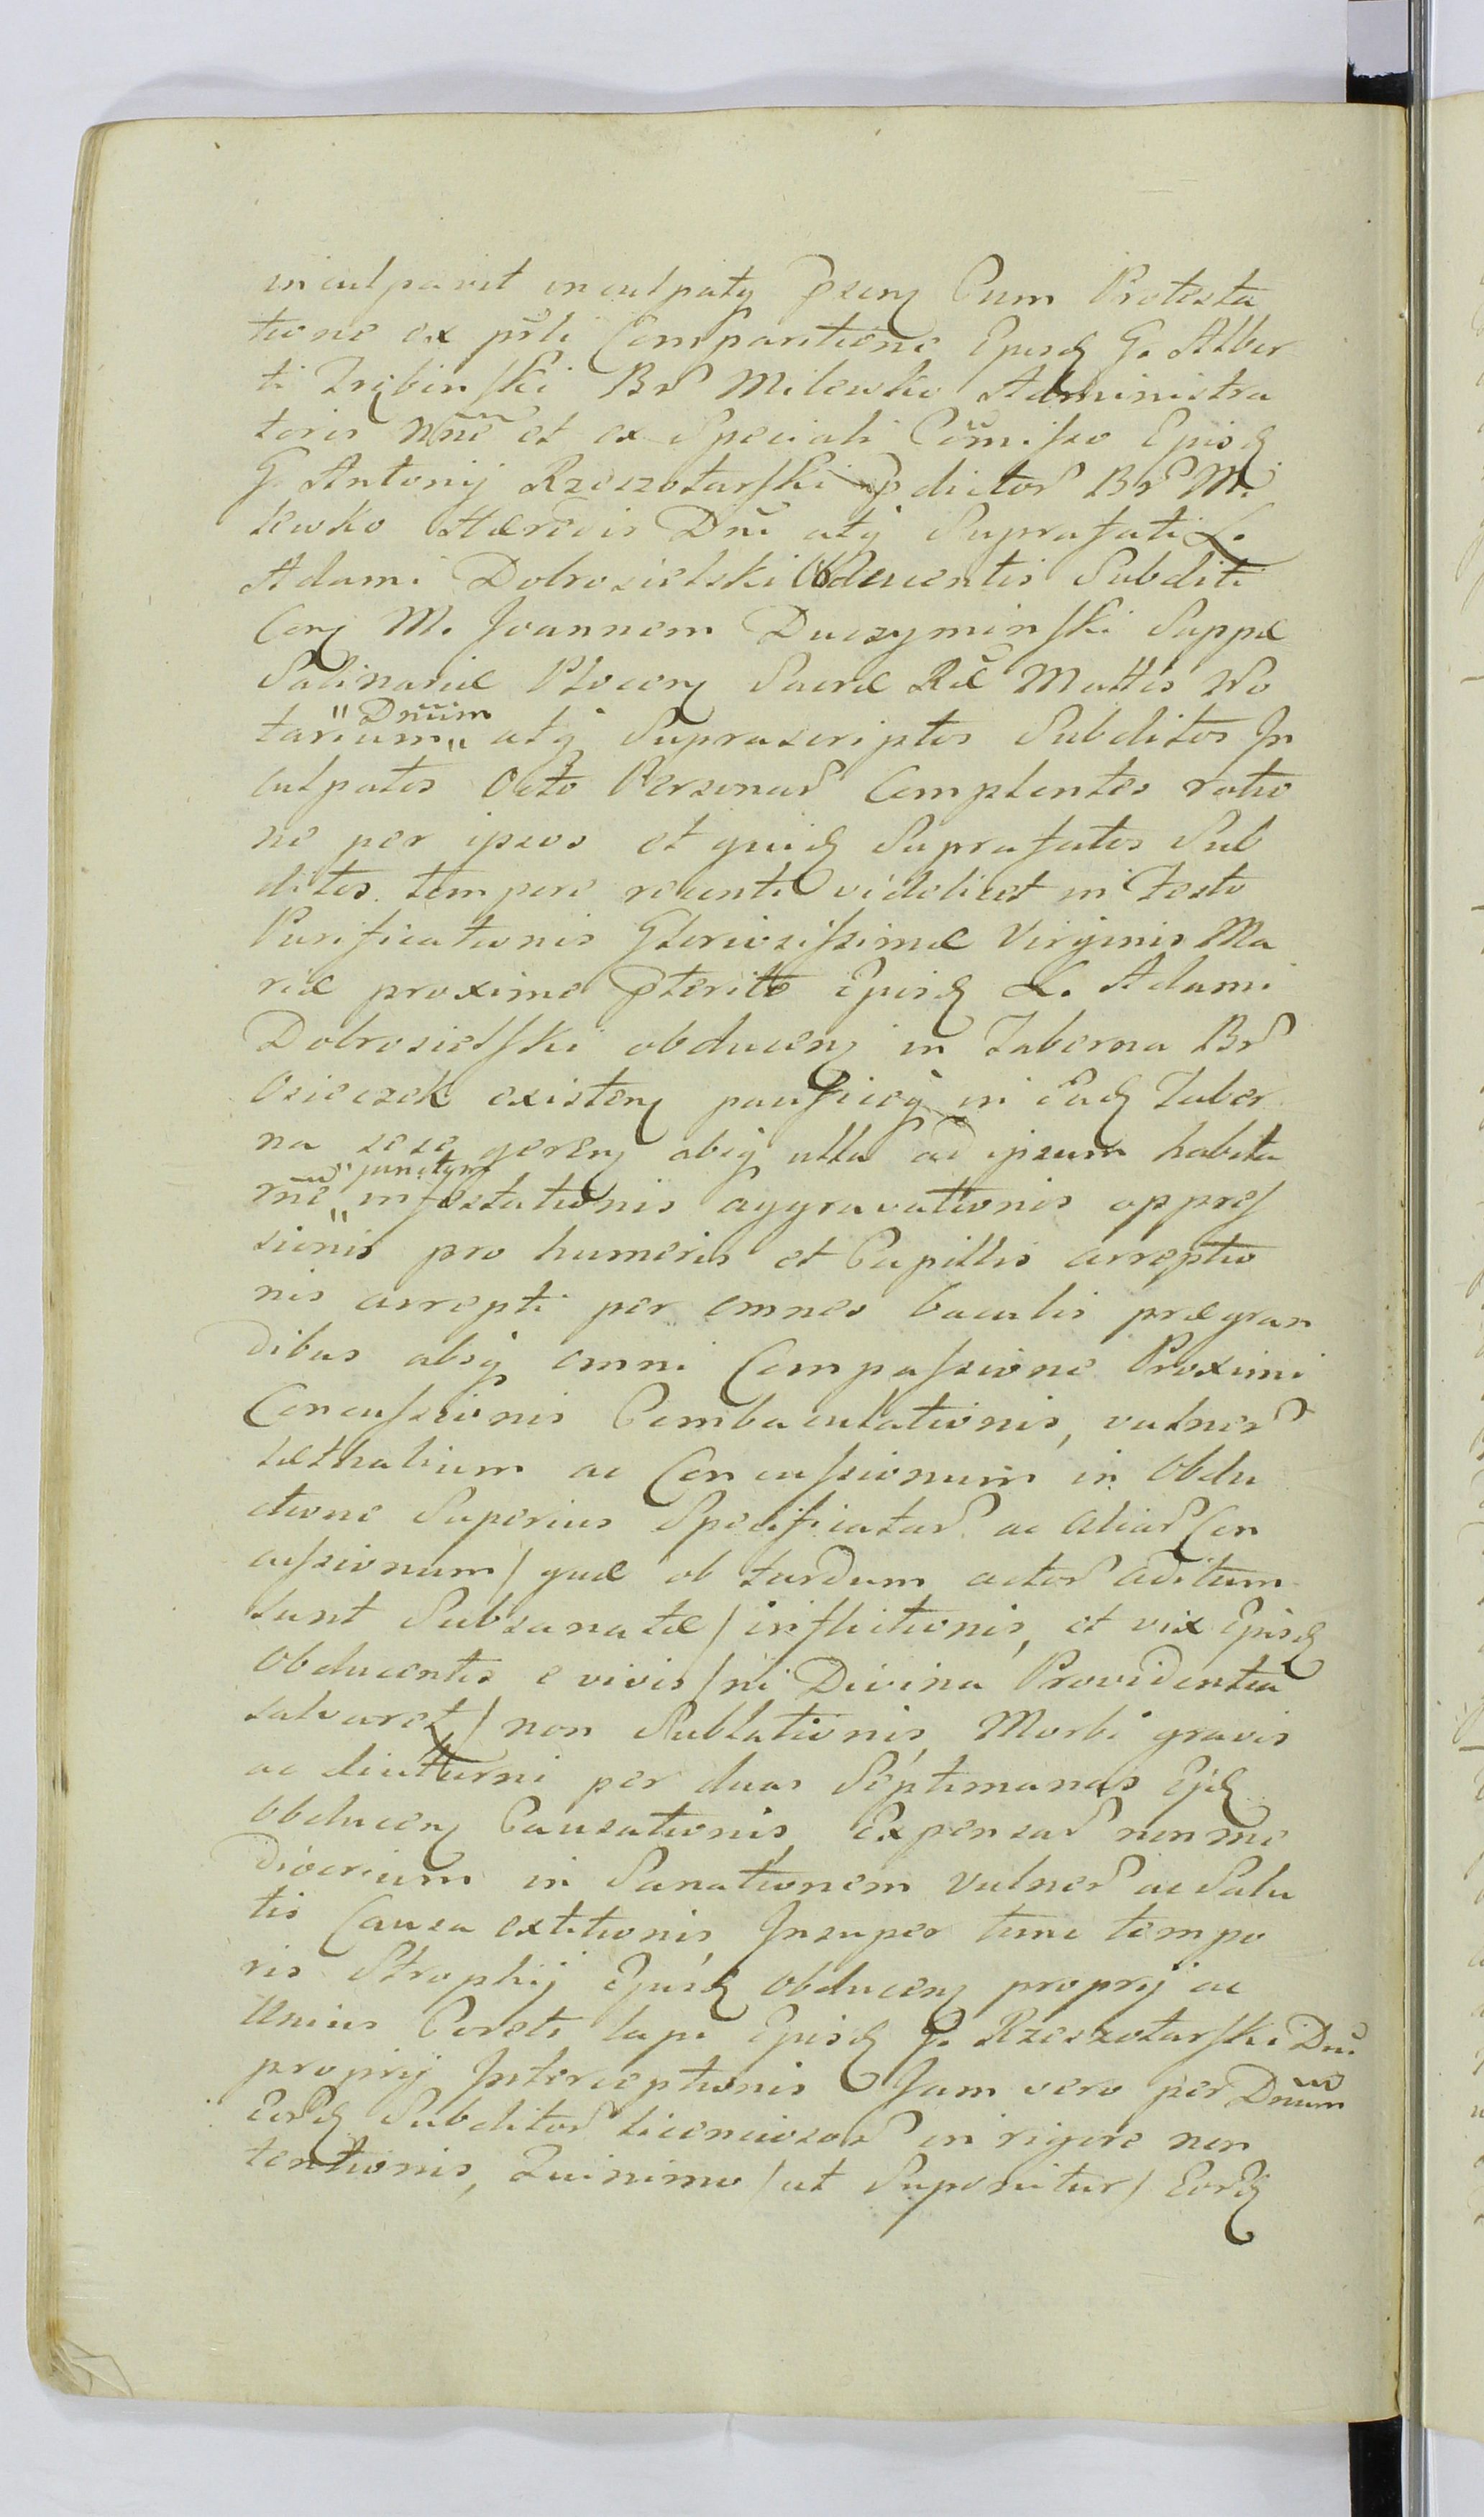 inculpavit inculpatq prsen Cum Protesta
tione ex prsli Comparitione Ejusd G. Alber
ti Trębinſki Br Milewko Administra
toris Nne et ex Speciali Commiſso Ejusd
G. Antonij Rzeszotarſki pdictor Br Mi
lewko Hæredis Dni atq Suprafati L.
Adami Dobrosielski Obducentis Subditi
Con M. Joannem Duczyminſki Suppæ
Salinariæ Plocen Sacræ Ræ Mattis No
tarium "Dnum" atq Suprascriptos Subditos In
culpatos Octo Personas Complentes ratio
ne per ipsos et quid Suprafatos Sub
ditos tempore recenti videlicet in Festo
Purificationis Glorioſiſsimæ Virginis Ma
riæ proxime pterito Ejusd L. Adami
Dobrosielſki obducen in Taberna Br
Osieczek existen pacificeq in Ead Taber
na sese geren absq ulla ad ipsum habita
rne "ad punctum" infestationis aggravationis oppreſ
sionis pro humeris et Capillis arreptio
nis arrepti per omnes baculis prægran
dibus absq omni Compaſsione Proximi
Concuſsionis Combaculationis, vulner
læthalium ac Concuſsionum in Obdu
ctione Superius Specificatar ac aliar Con
cuſsionum / quæ ob tardum actor aditum
sunt Subsanatæ / inflictionis, et vix Ejusd
Obducentis e vivis / ni Divina Providentia
salvaret / non Sublationis, Morbi gravis
ac diuturni per duas Septimanas Ejd
Obducen Causationis, Expensar non me
diocrium in Sanationem Vulner ac Salu
tis Causa extitionis, Insuper tunc tempo
ris Strophij Ejusd Obducen proprij ac
Unius Coreti lupi Ejusd G. Rzeszotarſki Dni
proprij Interceptionis Jam vero per Dnum
Eord Subditor licenciosor in rigore non
tentionis, Quinimo / ut Suponitur / Eord